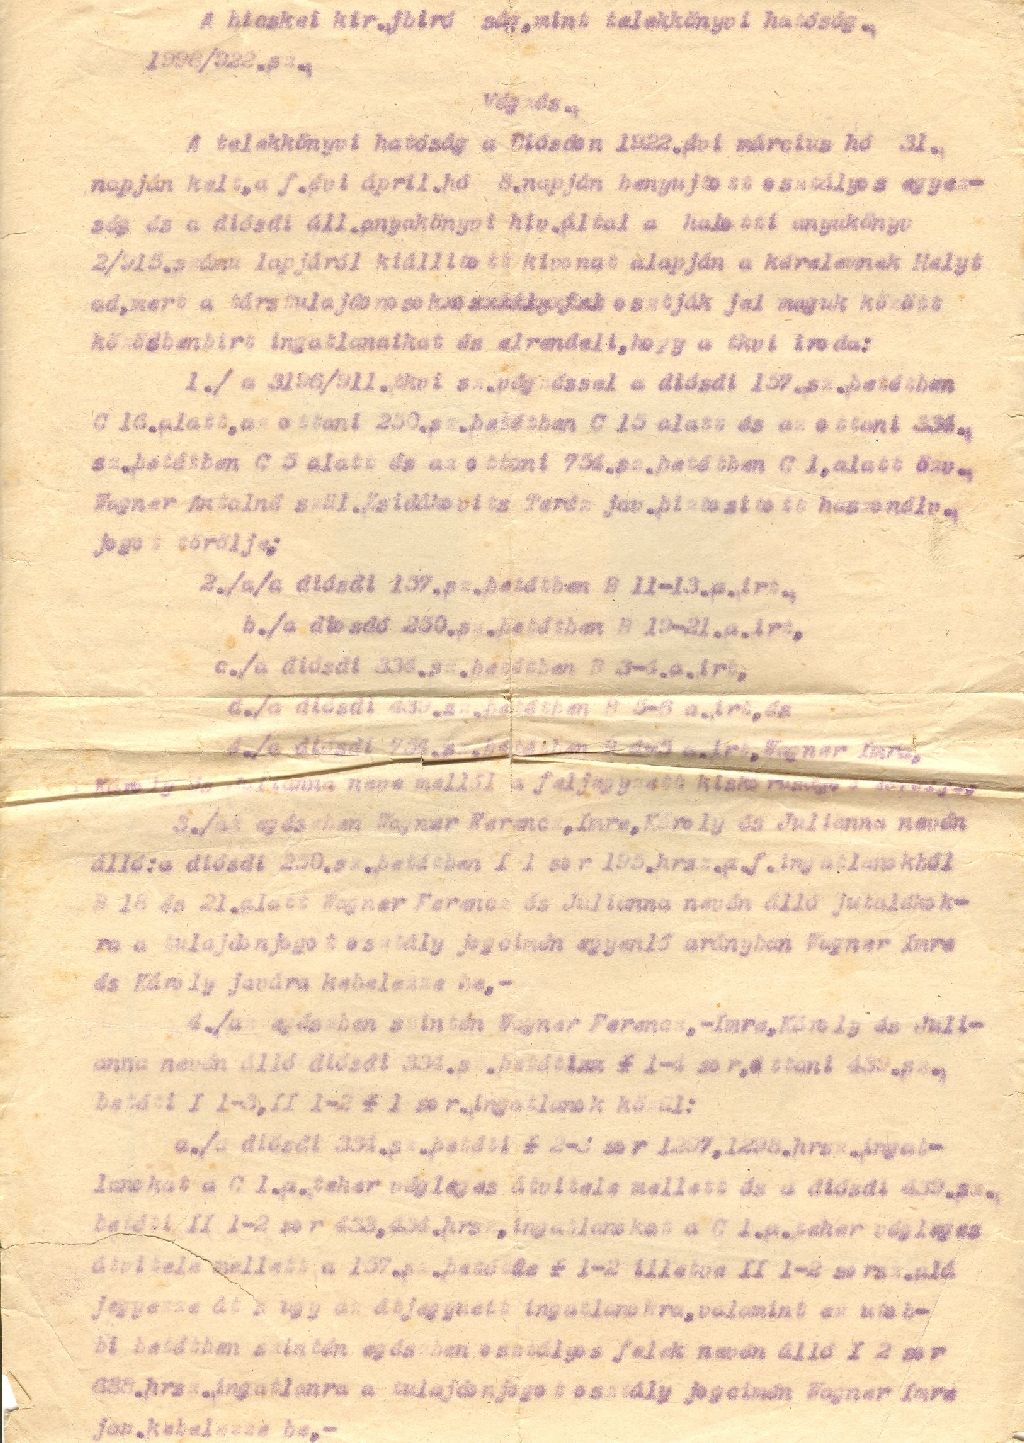 A bicskei kir.jbiró ság,mint telekkönyvi hatóság.,
1996/922.sz.,
Végzés.,
A telekkönyvi hatóság a Diósdon 1922.évi március hó 31.
napján kelt,a f.évi ápril.hó 8.napján benyujtott osztályos egyez-
ség és a diósdi áll.anyakönyvi hiv.által a halotti anyakönyv
2/915.számu lapjáról kiállitott kivonat alapján a kérelemnek Helyt
ad,mert a társtulajdonosok osztják fel maguk között
közösbenbirt ingatlanaikat és elrendeli,hogy a tkvi iroda:
1./ a 3196/911.tkvi sz.végzéssel a diósdi 157.sz.betétben
C 16.alatt,az ottani 250.sz.betétben C 15 alatt és az ottani 334.,
sz.betétben C 5 alatt és az ottani 754.sz.betétben C 1,alatt özv.
Wagner Antalné szül. Teréz jav.biztositott haszonélv.,
jogot törölje;
2./a/a diósdi 157.sz.betétben B 11-13.a.irt.,
b./a diósdi 250.sz.betétben B 19-21.a.irt,
c./a diósdi 334.sz.betétben B 3-4.a.irt,
d./a diósdi 439.sz.betétben B 5-6 a.irt,és
é./a diósdi 754.sz.betétben B 4-5 a.irt,Wagner Imre,
Károly és Julianna neve mellől a feljegyzett kiskoruságot
3./az egészben Wagner Ferencz,Imre,Károly és Julianna nevén
álló:a diósdi 250.sz.betétben I 1 sor 195.hrsz.a.f.ingatlanokból
B 18 és 21.alatt Wagner Ferencz és Julianna nevén álló jutalékok-
ra a tulajdonjogot osztály jogcimén egyenlő arányban Wagner Imre
és Károly javára kebelezze be,-
4./az egészben szintén Wagner Ferencz,-Imre,Károly és Juli-
anna nevén álló diósdi 334.s .betéti 1-4 sor,ottani 439.sz.,
betéti I 1-3,II 1-2 † 1 sor.ingatlanok közül:
a./a diósdi 334.sz.betéti † 2-3 sor 1297,1298.hrsz.ingat-
lanokat a C 1.a.teher végleges átvitele mellett és a diósdi 439.sz.,
betéti II 1-2 sor 433,434.hrsz,ingatlanokat a C 1.a.teher végleges
átvitele mellett a 157.sz.betétbe † 1-2 illetve II 1-2 sorsz.alá
jegyezze át s ugy az átjegyzett ingatlanokra,valamint ez utób-
bi betétben szintén egészben osztályos felek nevén álló I 2 sor
.hrsz.,ingatlanra a tulajdonjogot osztály jogcimén Wagner Imre
jav.kebelezze be,-